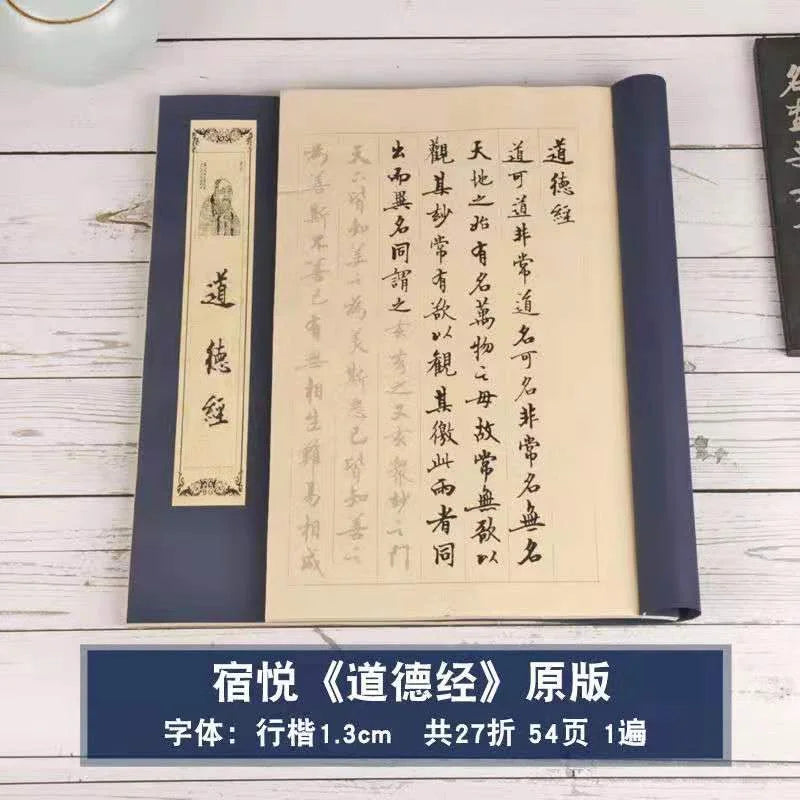 道德經
道德經
道可道非常道名可名非常名無名
天地之始有名萬物之母故常無欲以
觀其妙常有欲以觀其徼此兩者同
出而異名同謂之玄玄之又玄衆妙之門
天下皆知美之為美斯惡已皆知善之
為善斯不善已有無相生難易相成
宿悦《道德经》原版
字体：行楷1.3cm 共27折 54页 1遍